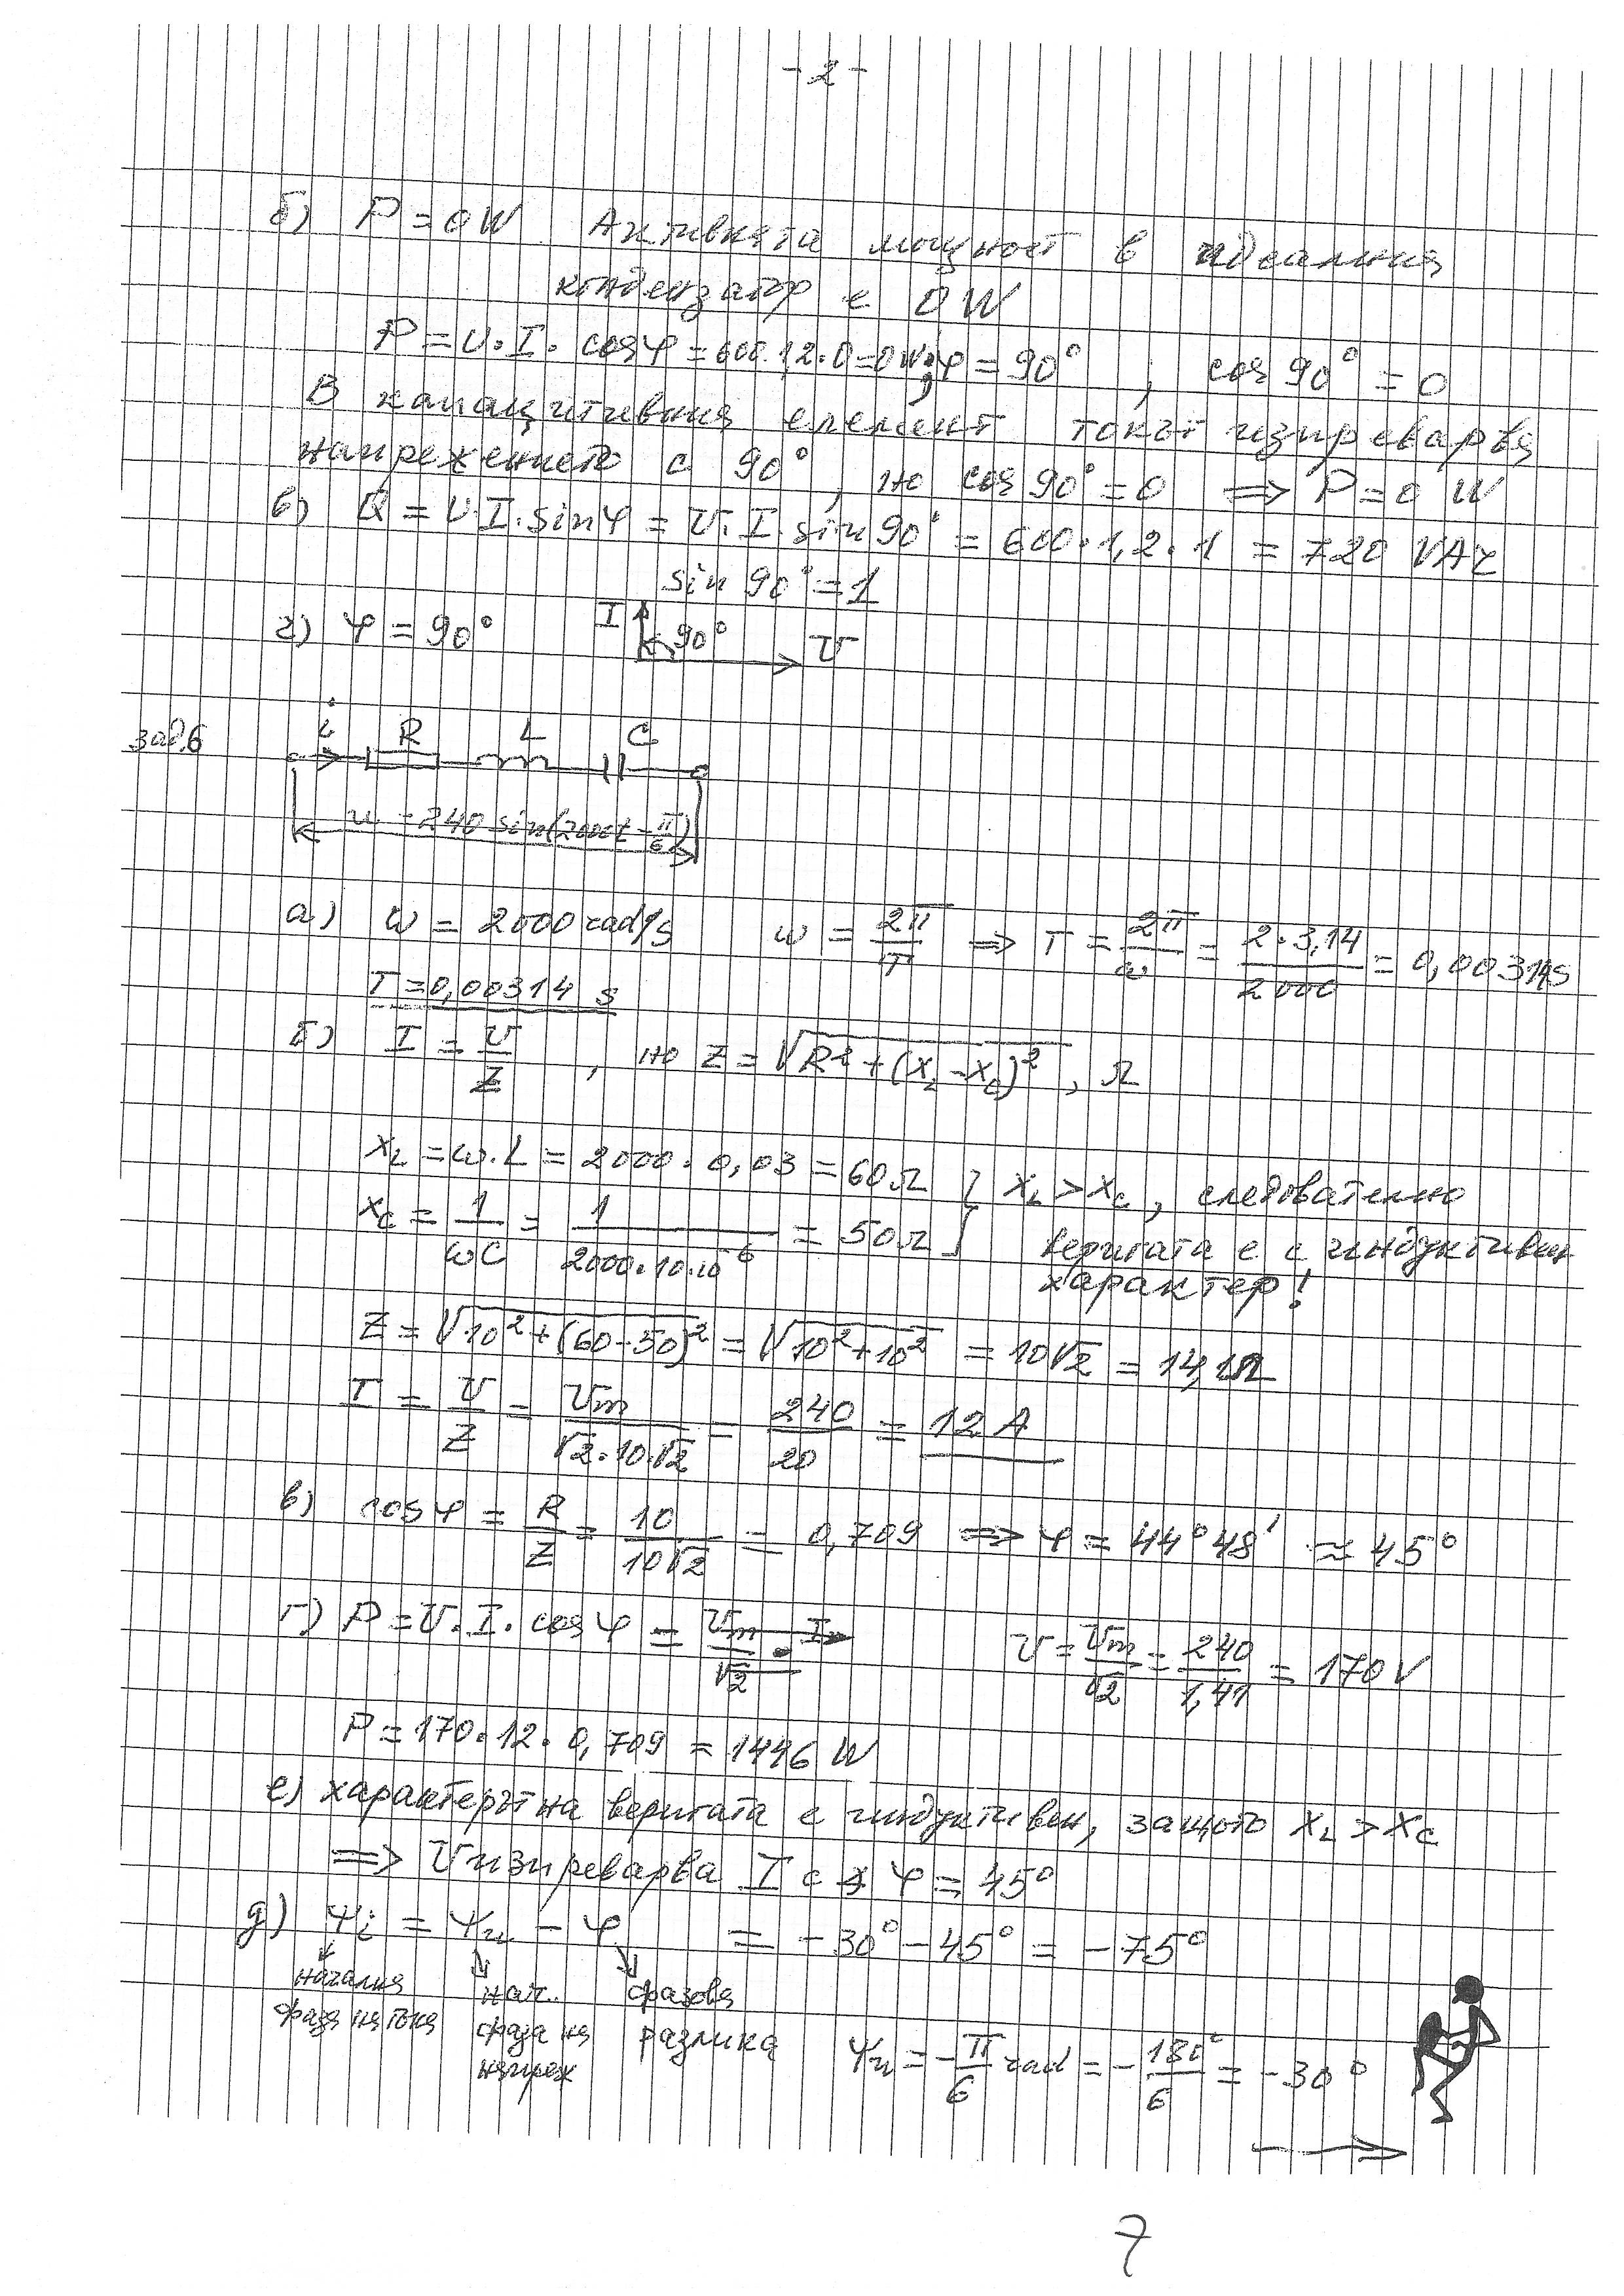 - 2 -
б) P = 0 W Активната мощност в идеалния
кондензатор е 0 W
P = U . I . cosφ = 600 . 1,2 . 0 = 0 W ; φ = 90° , cos 90° = 0
В капацитивния елемент токът изпреварва
напрежението с 90° , но cos 90° = 0 => P = 0 W
в) Q = U . I . sinφ = U . I . sin 90° = 600 . 1,2 . 1 = 720 VAr
sin 90° = 1
г) φ = 90° I 90° U
зад. 6 i R L C
u = 240 sin(2000t - π/6)
а) ω = 2000 rad/s ω = 2π/T => T = 2π/ω = 2 . 3,14/2000 = 0,00314 s
T = 0,00314 s
б) I = U/Z , но Z = √R² + (XL - XC)² , Ω
XL = ω . L = 2000 . 0,03 = 60 Ω } XL > XC , следователно
XC = 1/ωC = 1/2000.10.10⁻⁶ = 50 Ω веригата е с индуктивен
характер!
Z = √10² + (60 - 50)² = √10² + 10² = 10√2 = 14,1 Ω
I = U/Z = Um/√2 . 10 . √2 = 240/20 = 12 A
в) cosφ = R/Z = 10/10√2 = 0,709 => φ = 44° 48' ≈ 45°
г) P = U . I . cosφ = Um/√2 . Im U = Um/√2 = 240/1,41 = 170 V
P = 170 . 12 . 0,709 = 1446 W
е) характерът на веригата е индуктивен, защото XL > XC
=> U изпреварва I с φ = 45°
д) ψi = ψu - φ = - 30° - 45° = - 75°
начална нач. фазова
фаза на тока фаза на разлика ψu = - π/6 rad = - 180°/6 = - 30°
напреж
7